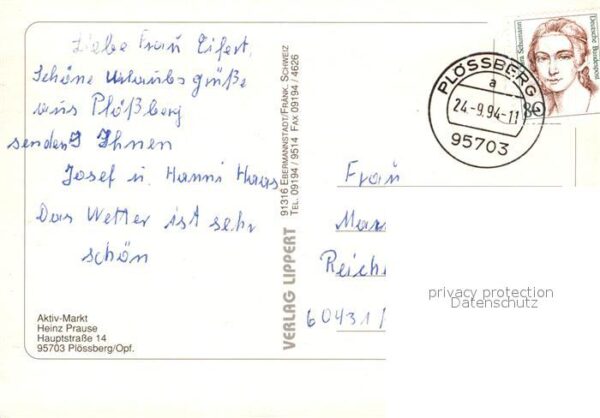 Liebe Frau Eifert,
Schöne Urlaubsgrüße
aus Plößberg
senden Ihnen
Josef u. Hanni Haas
Das Wetter ist sehr
schön
Aktiv-Markt
Heinz Prause
Hauptstraße 14
95703 Plössberg/Opf.
VERLAG LIPPERT
91316 EBERMANNSTADT/FRÄNK. SCHWEIZ
TEL. 09194 / 9514 FAX 09194 / 4626
PLÖSSBERG
a
24.-9.94-11
95703
Schumann
Deutsche Bundespost
80
Frau
Mar
Reiche
60431/
privacy protection
Datenschutz